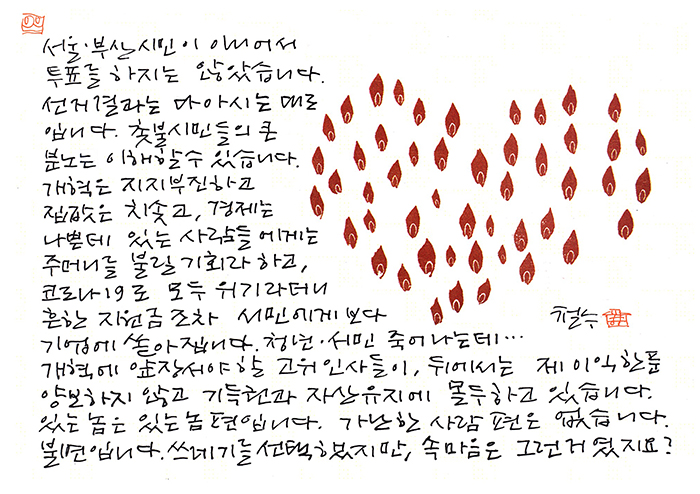 서울·부산시민이 이녀어서
투표를 하지는 않았습니다.
선거결과는 다 아시는 대로
입니다. 촛불시민들의 큰
분노는 이해할 수 있습니다.
개혁은 지지부진하고
집값은 치솟고, 경제는
나쁜데 있는 사람들에게는
주머니를 불릴 기회라 하고,
코로나19로 모두 위기라더니
흔한 지원금조차 서민에게보다
기업에 쏟아집니다. 청년·서민 죽어나는데…
개혁에 앞장서야 할 고위인사들이, 뒤에서는 제 이익 한톨
양보하지 않고 기득권과 자산유지에 몰두하고 있습니다.
있는 놈은 있는 놈 편입니다. 가난한 사람 편은 없습니다.
불면입니다. 쓰레기를 선택했지만, 속마음은 그런거였지요?
철수